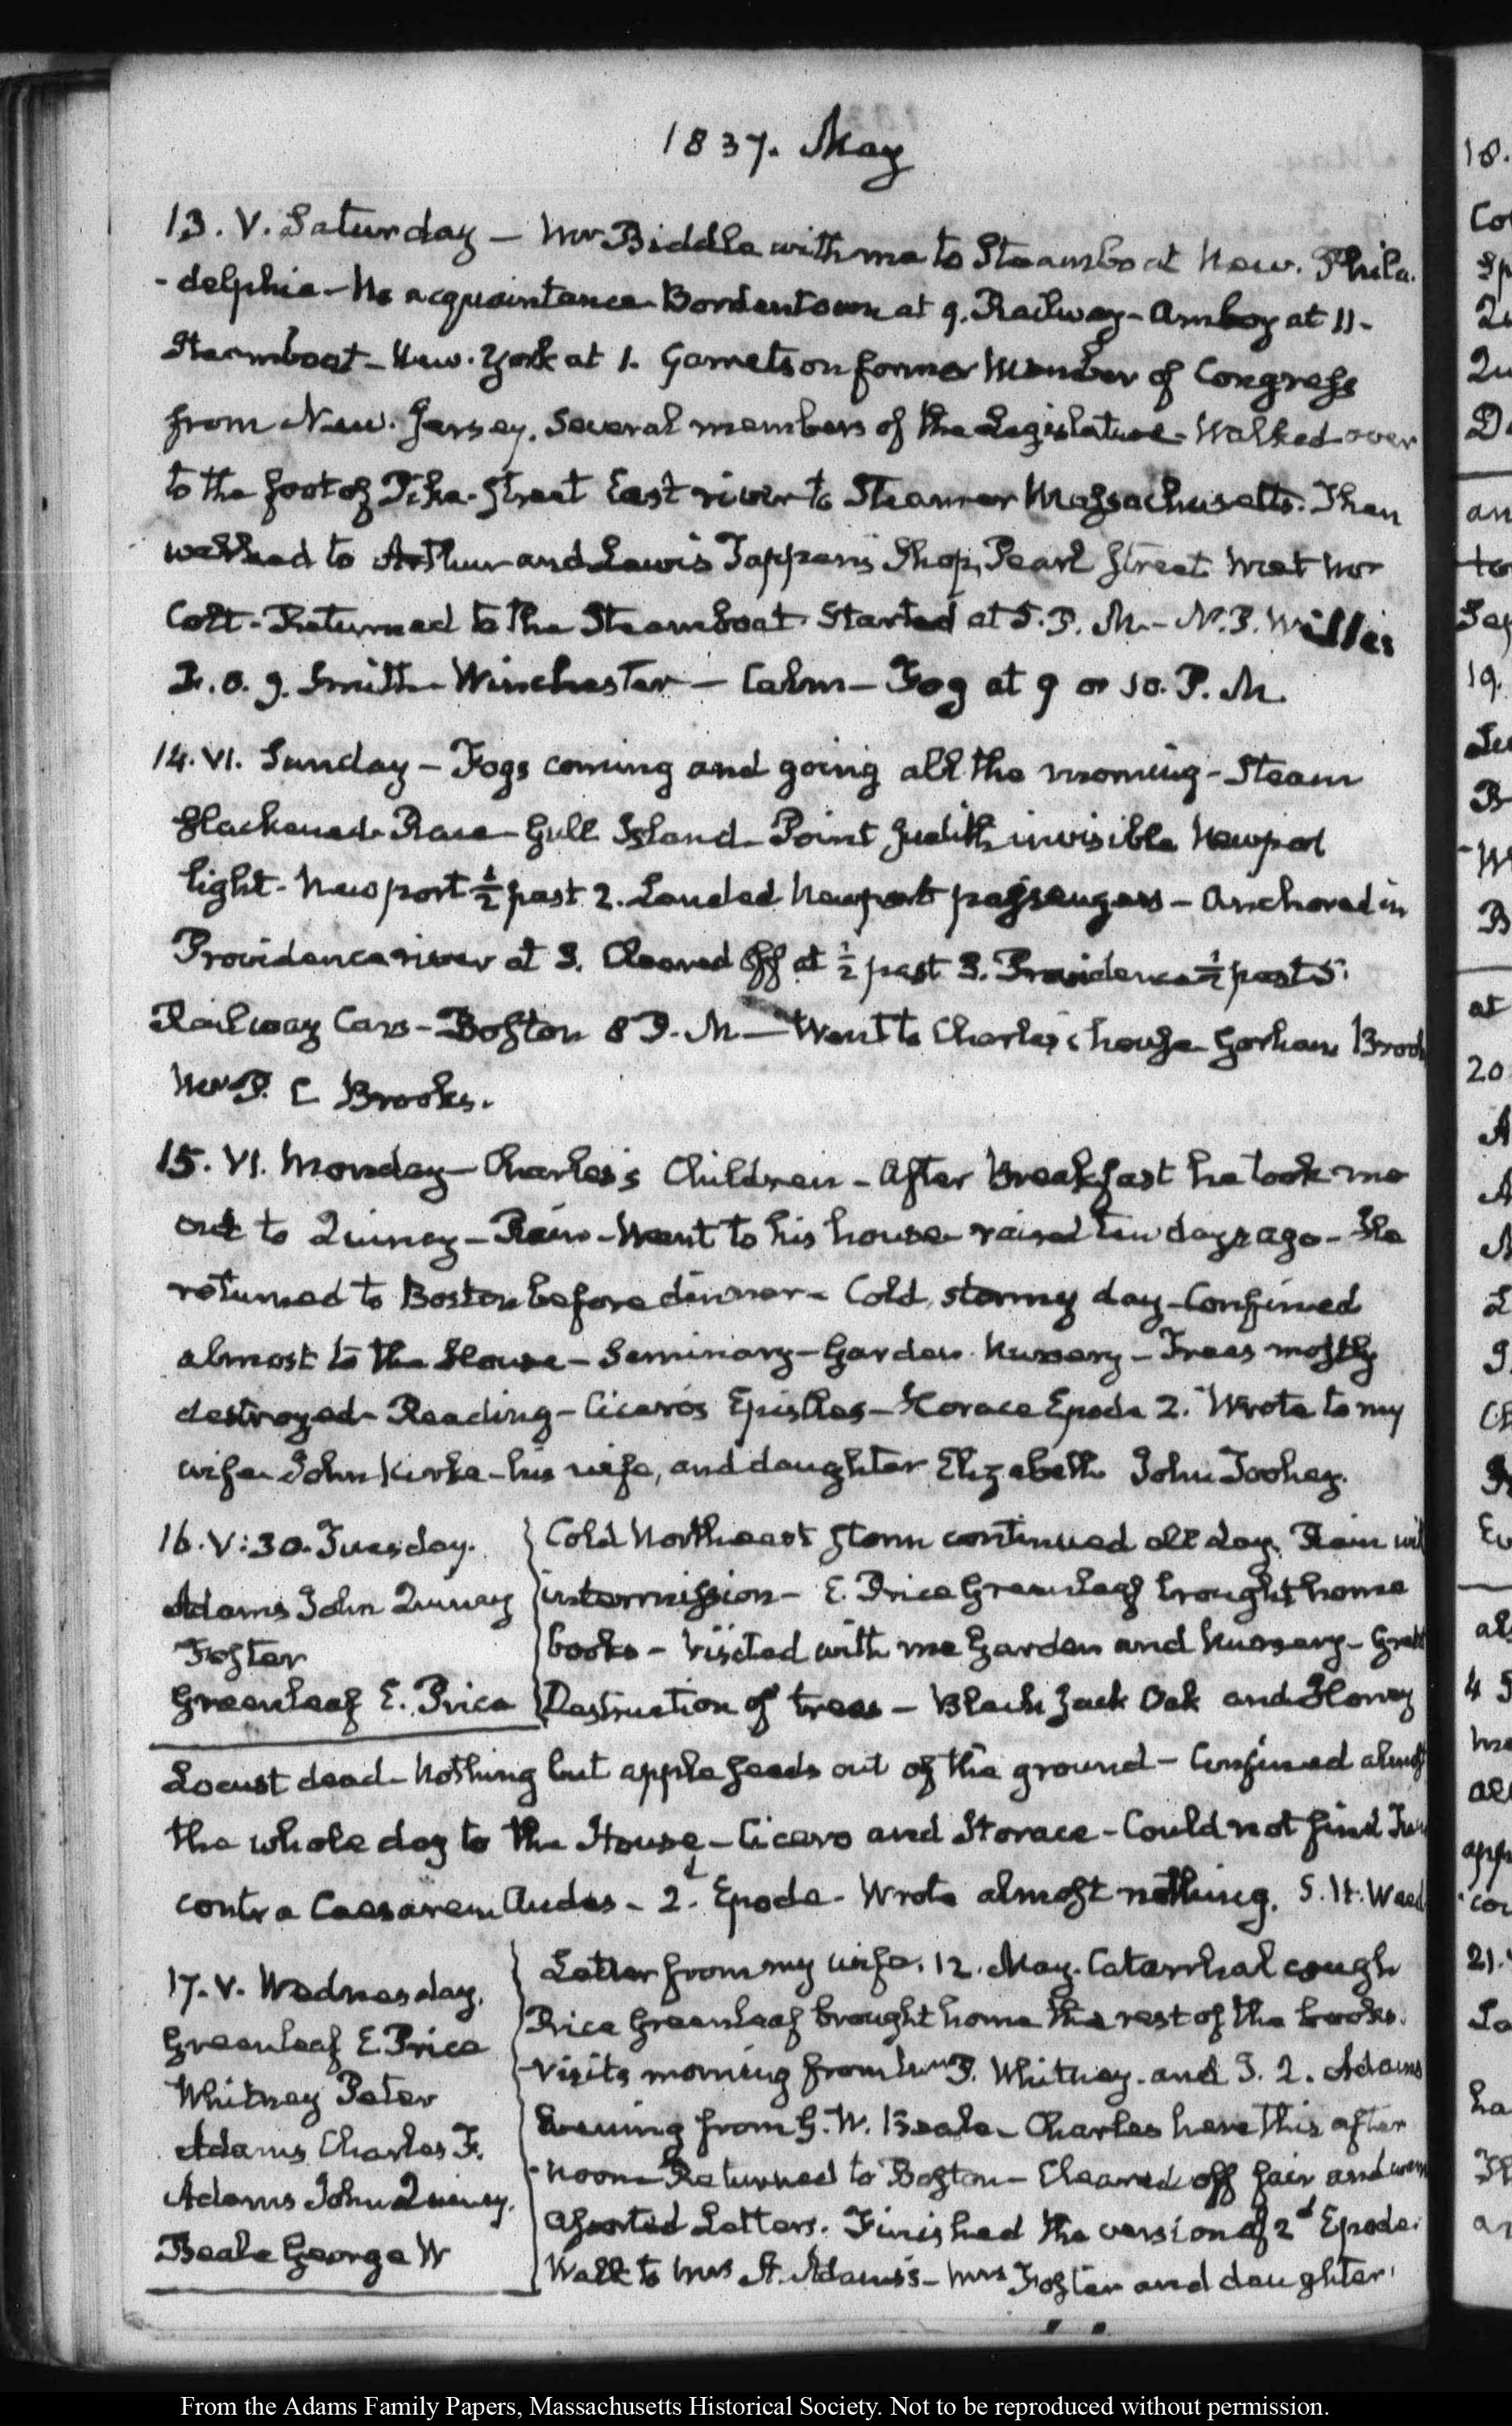 1837. May
13. V. Saturday — Mr Biddle with me to Steamboat New. Phila.
-delphia — No acquaintance — Bordentown at 9. Railway — Amboy at 11 -
Steamboat — New-York at 1. Garretson former Member of Congress
from New-Jersey. Several members of the Legislature. Walked over
to the foot of Pike-Street East river to Steamer Massachusetts. Then
walked to Arthur and Lewis Tappan's Shop, Pearl Street. Met Mr
Colt — Returned to the Steamboat. Started at 5. P. M. — N. P. Willis
F. O. J. Smith — Winchester — Calm — Fog at 9 or 10. P. M.
14. VI. Sunday — Fogs coming and going all the morning — Steam
slackened — Race — Gull Island — Point Judith invisible Newport
light — Newport ½ past 2. Landed Newport passengers — Anchored in
Providence river at 3. Cleared off at ½ past 3. Providence ½ past 5.
Railway Cars — Boston 8 P. M — Went to Charles's house — Gorham Brook
Mr P. C Brooks.
15. VI. Monday — Charles's Children — After Breakfast he took me
out to Quincy — Rain — Went to his house raised ten days ago — He
returned to Boston before dinner — Cold, stormy day — Confined
almost to the House — Seminary — Garden Nursery — Trees mostly
destroyed — Reading — Cicero's Epistles — Horace Epode 2. Wrote to my
wife — John Kirke — his wife, and daughter Elizabeth John Toohey.
16. V:30. Tuesday.
Adams John Quincy
Foster
Greenleaf E. Price
Cold Northeast storm continued all day. Rain
intermission — E. Price Greenleaf brought home
books — Visited with me Garden and Nursery — Great
Destruction of trees — Black Jack Oak and Honey
Locust dead — Nothing but apple seeds out of the ground — Confined almost
the whole day to the House — Cicero and Horace — Could not find
contra Caesarem Audes — 2d Epode — Wrote almost nothing. S. H.
17. V. Wednesday.
Greenleaf E Price
Whitney Peter
Adams Charles F.
Adams John Quincy.
Beale George W
Letter from my wife. 12. May. Catarrhal cough
Price Greenleaf brought home the rest of the books.
Visits morning from Mr P. Whitney. and J. Q. Adams
Evening from G. W. Beale — Charles here this after
-noon — Returned to Boston — Cleared off fair and
Assorted Letters. Finished the version of 2d Epode.
Walk to Mrs A. Adams's — Mrs Foster and daughter.
18.
19.
20
21.
From the Adams Family Papers, Massachusetts Historical Society. Not to be reproduced without permission.